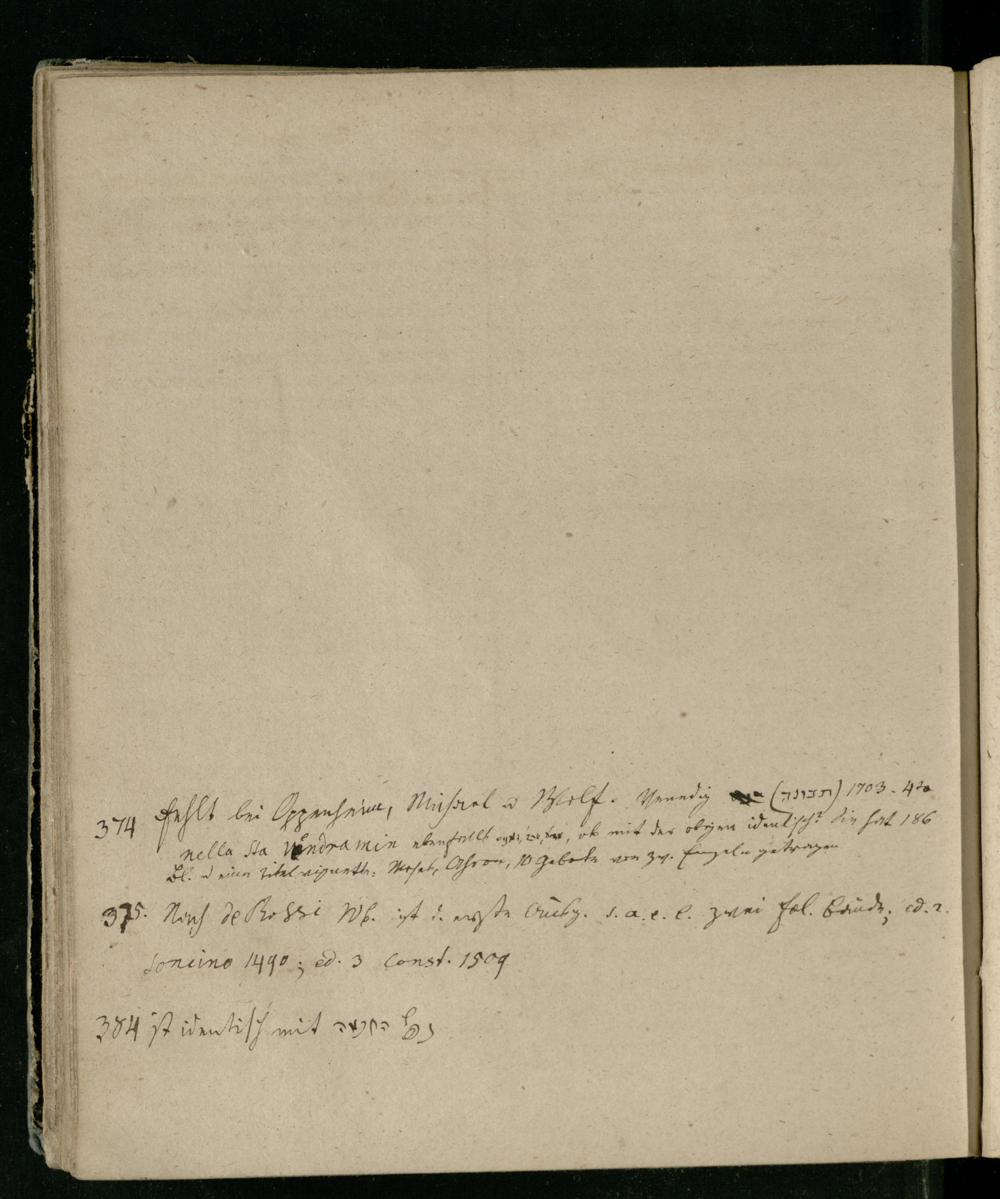 374 fehlt bei Oppenheim, Michael u Wolf. Venedig (תבונה) 1703. 4to
nella Sta Vendramin ebenfalls ob mit der obigen identisch? Sie hat 186
Bl. u eine Titelvignette: Moses, Ahron, 10 Gebote von zw. Engeln getragen
375. Nach de Rossi Wb. ist d. erste Ausg. s. a. e. l. zwei fol. Bände; ed. 2.
Soncino 1490; ed. 3 Const. 1509
384 ist identisch mit